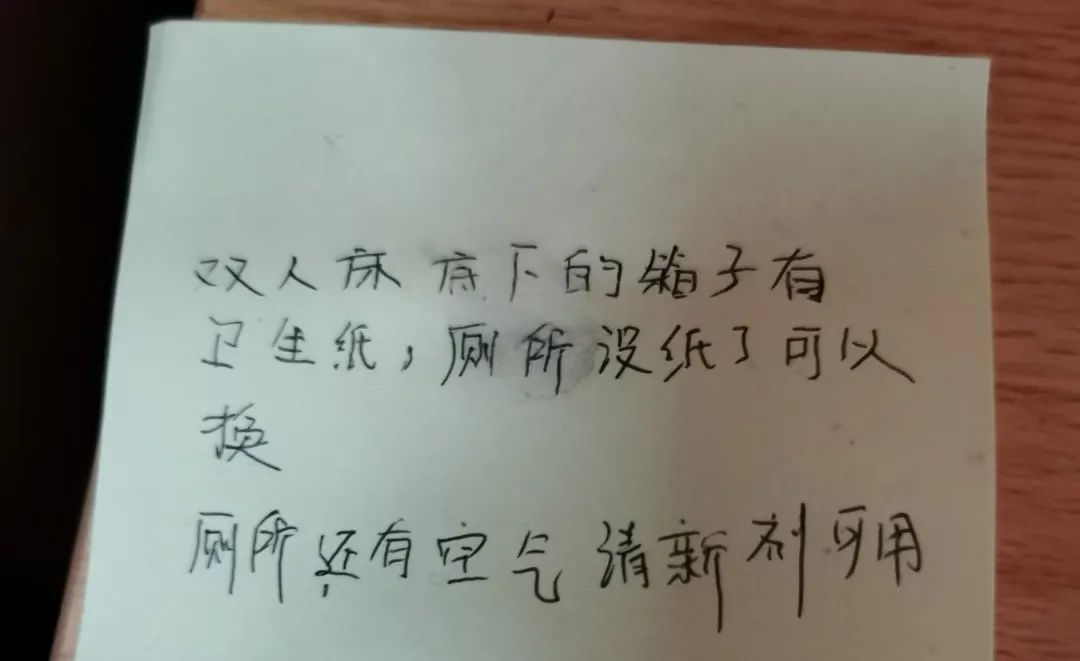 双人床底下的箱子有
卫生纸，厕所没纸了可以
换
厕所还有空气清新剂可用